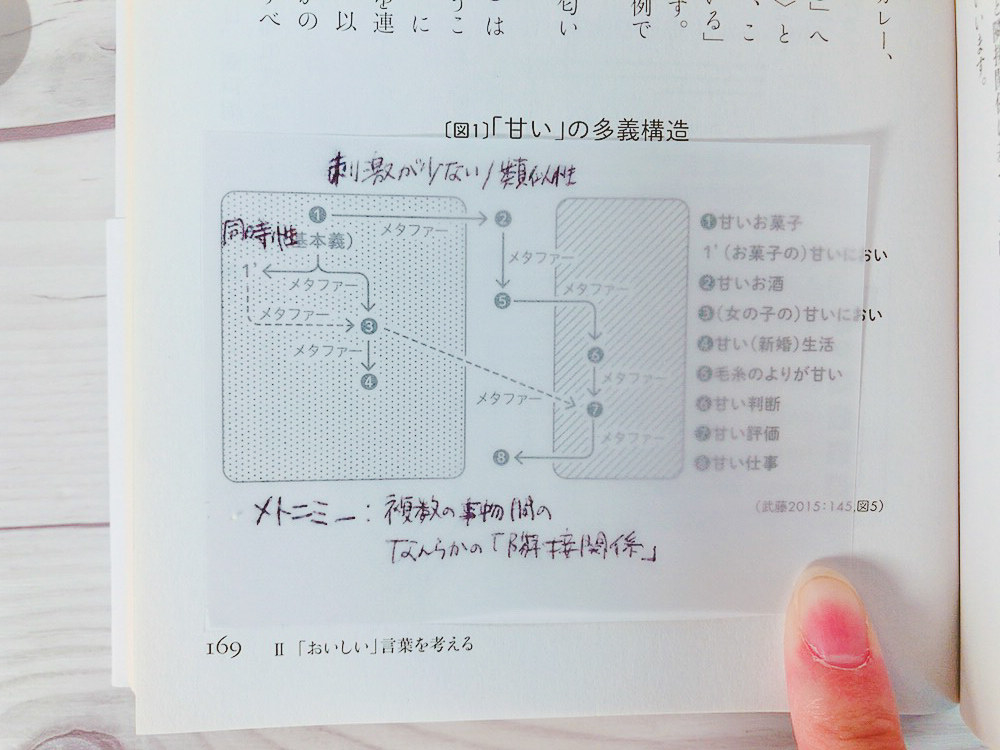 カレー、
」へ
〉と
、こ
いる」
す。
例で
匂い
は
うこ
に
を連
以
かの
べ
います。
〔図1〕「甘い」の多義構造
刺激が少ない/類似性
同時性
❶
基本義）
メタファー
❷
メタファー
1'
メタファー
メタファー
❸
メタファー
❹
❺
メタファー
❻
メタファー
メタファー
❼
メタファー
❽
❶甘いお菓子
1'（お菓子の）甘いにおい
❷甘いお酒
❸（女の子の）甘いにおい
❹甘い（新婚）生活
❺毛糸のよりが甘い
❻甘い判断
❼甘い評価
❽甘い仕事
（武藤2015：145,図5）
メトニミー：複数の事物間の
なんらかの「隣接関係」
169 Ⅱ 「おいしい」言葉を考える